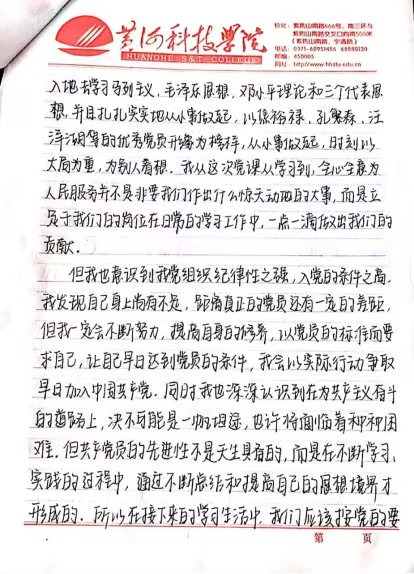 黄河科技学院
HUANGHE S&T COLLEGE
校址：紫荆山南路666号，南三环与
紫荆山南路交叉口向南500米
（紫荆山南路，学府路）
电话：0371-68951486 68880130
邮编：450005
网址：http://www.hhstu.edu.cn
入地去学习马列主义、毛泽东思想、邓小平理论和三个代表思
想，并且扎扎实实地从小事做起，以焦裕禄、孔繁森、汪
洋湖等的优秀党员形像为榜样，从小事做起，时刻以
大局为重，为别人着想。我从这次党课从学习到，全心全意为
人民服务并不是非要我们作出什么惊天动地的大事，而是立
足于我们的岗位在日常的学习工作中，一点一滴做出我们的
贡献．
但我也意识到我党组织纪律性之强，入党的条件之高，
我发现自己身上尚有不足，距离真正的党员还有一定的差距，
但我一定会不断努力，提高自身的修养，以党员的标准而要
求自己，让自己早日达到党员的条件，我会以实际行动争取
早日加入中国共产党．同时我也深深认识到在为共产主义奋斗
的道路上，决不可能是一帆坦途，也许将面临着种种困
难．但共产党员的先进性不是天生具有的，而是在不断学习、
实践的过程中，通过不断总结和提高自己的思想境界才
形成的．所以在接下来的学习生活中，我们应该按党的要
第 页